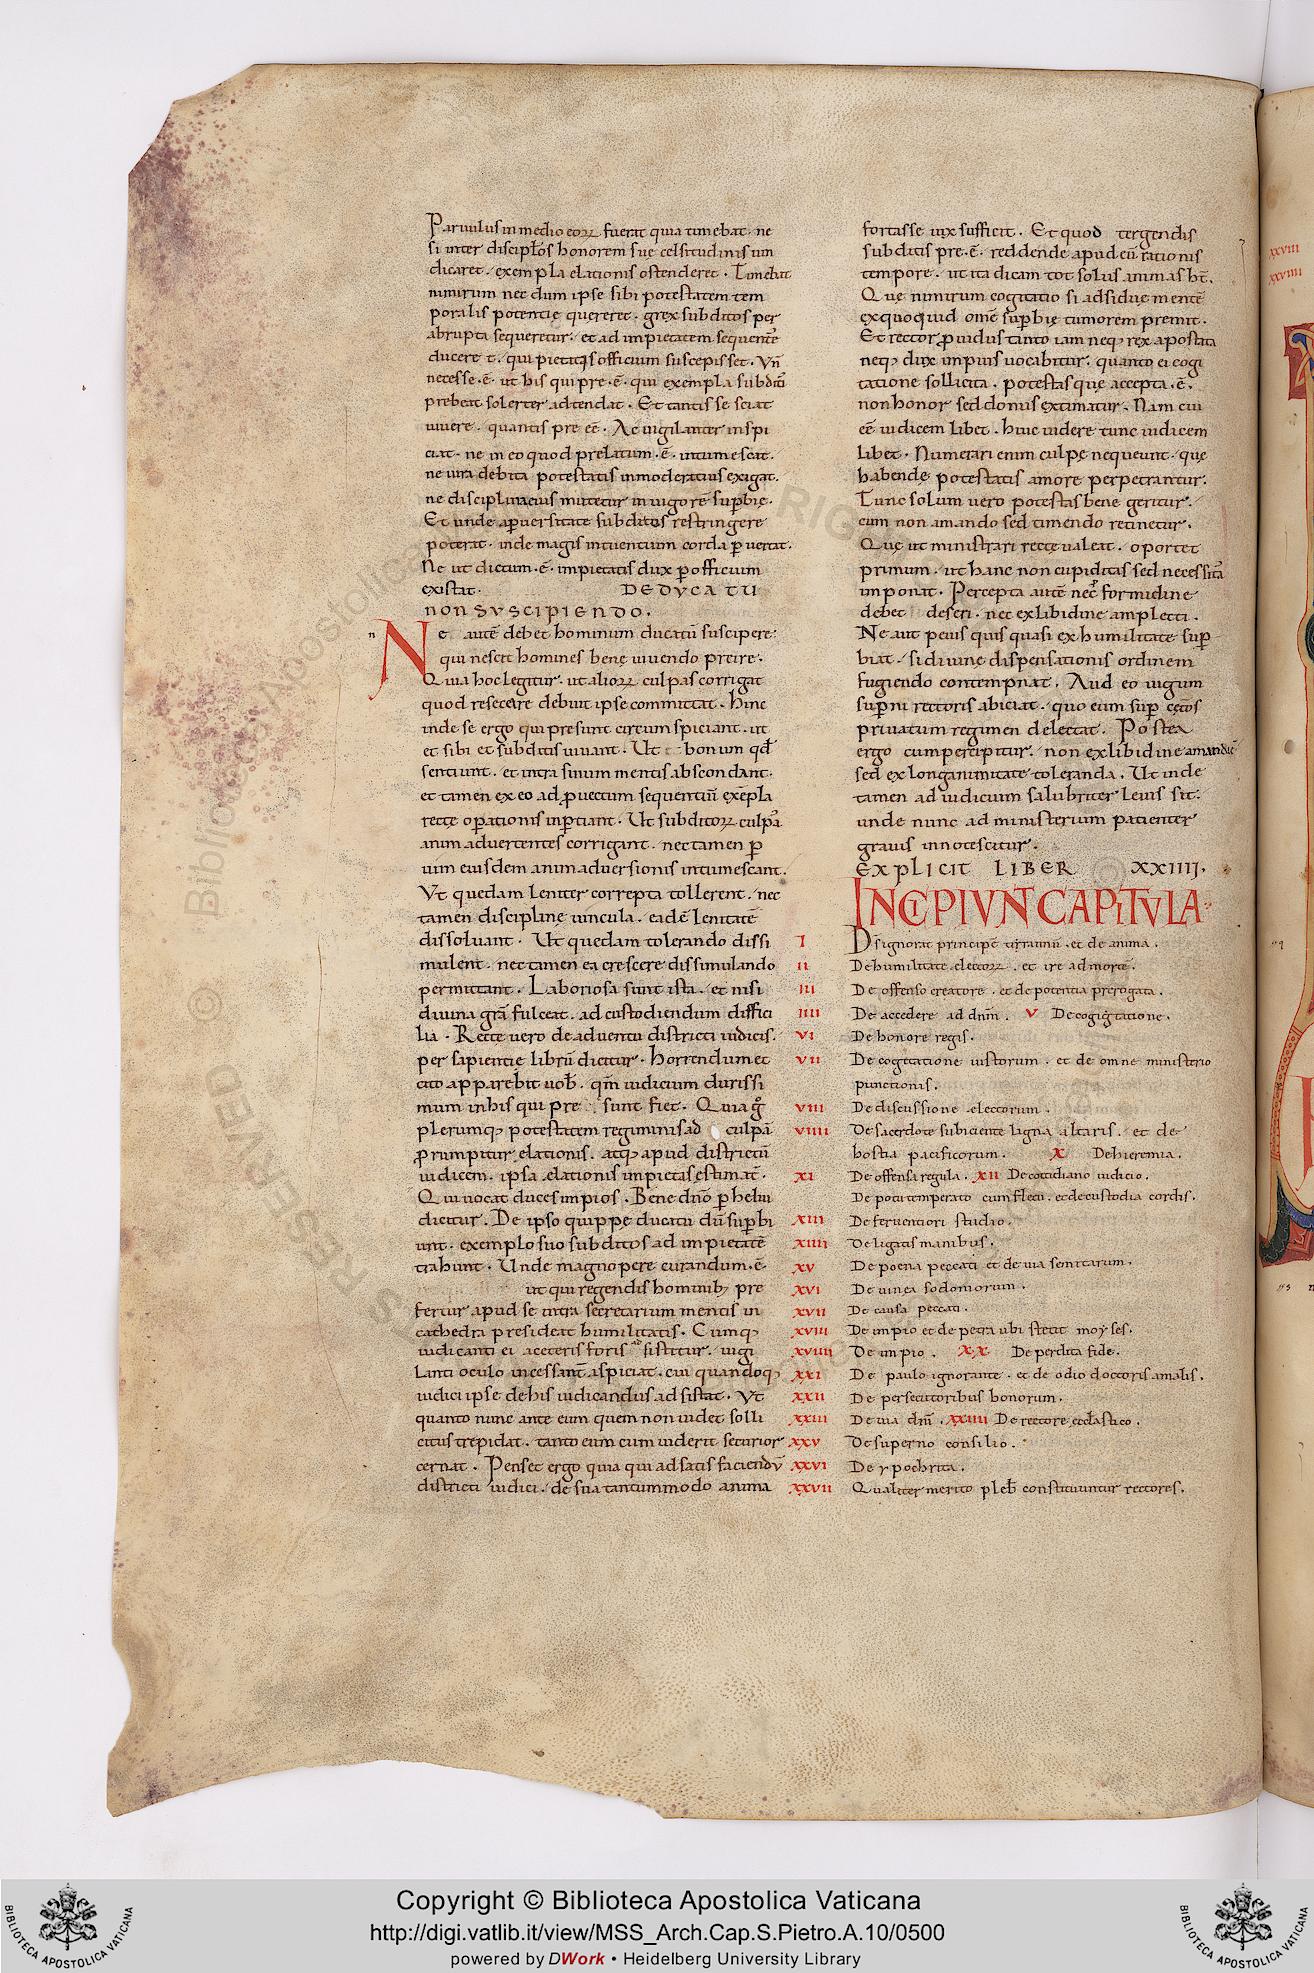 Paruulus in medio eorꝝ fuerat quia timebat · ne
si inter discip̄los honorem suę celsitudinis uin
dicaret · exempla elationis ostenderet · Timebat
nimirum nec dum ipse sibi potestatem tem
poralis potentię quereret · grex subditos per
abrupta sequeretur · et ad impietatem sequentē
duceret · qui pietatis officium suscepisset · Vn̄
necesse · ē · ut his qui pre · ē · qui exempla subditis
prebeat solerter adtendat · Et tantis se sciat
uiuere · quantis pre eē · Ac uigilanter inspi
ciat · ne in eo quod prelatum · ē · intumescat ·
ne iura debita potestatis inmoderatius exigat ·
ne disciplinae ius mutetur in uigorē sup̄bię ·
Et unde a puersitate subditos restringere
poterat · inde magis intuentium corda puertat ·
Ne ut dictum · ē · impietatis dux p officium
existat · DE DVCATU
NON SVSCIPIENDO ·
n
Ne autē debet hominum ducatū suscipere
qui nescit homines bene uiuendo preire ·
Quia hoc legitur · ut aliorꝝ culpas corrigat
quod resecare debuit ipse committat · Hinc
inde se ergo qui presunt circum spiciant · ut
et sibi et subditis uiuant · Ut bonum qd̄
sentiunt · et intra sinum mentis abscondant ·
et tamen ex eo ad puectum sequentiū exēpla
rectę opationis inptiant · Ut subditorꝝ culpā
anim aduertentes corrigant · nec tamen p
uim eiusdem anim aduersionis intumescant ·
Vt quedam leniter correpta tollerent · nec
tamen disciplinę uincula · eadē lenitatē
dissoluant · Ut quedam tolerando dissi
mulent · nec tamen ea crescere dissimulando
permittant · Laboriosa sunt ista · et nisi
diuina grā fulceat · ad custodiendum diffici
lia · Recte uero de aduentu districti iudicis ·
per sapientie librū dicitur · Horrendum et
cito apparebit uob · qm̄ iudicium durissi
mum in his qui pre sunt fiet · Quia g̊
plerumq; potestatem regiminis ad culpā
prumpitur elationis · atq; apud districtū
iudicem · ipsa elationis impietas estimat̄ ·
Qui uocat duces impios · Bene dn̄o p heliu
dicitur · De ipso quippe ducatu dū sup̄bi
unt · exemplo suo subditos ad impietatē
trahunt · Unde magno pere curandum · ē ·
ut qui regendis hominib; pre
fertur apud se intra secretarium mentis in
cathedra presideat humilitatis · Cumq;
iudicanti ei aceteris foris sistitur · uigi
lanti oculo incessant̄ aspiciat · cui quandoq;
iudici ipse de his iudicandus ad sistat · Vt
quanto nunc ante eum quem non uidet solli
citus trepidat · tanto eum cum uiderit securior
cernat · Penset ergo quia qui ad satis faciendū
districti iudici · de sua tantummodo anima
fortasse uix sufficit · Et quod tergendis
subditis pre · ē · reddendę apud eū rationis
tempore · ut ita dicam tot solus animas ht̄ ·
Quę nimirum cogitatio si adsiduę mentē
ex quoquid omē sup̄bię tumorem premit ·
Et rector puidus tanto iam neq; rex apostata
neq; dux impius uocabitur · quanto ei cogi
tatione sollicita · potestas quę accepta · ē ·
non honor sed donus extimatur · Nam cui
eē iudicem libet · hinc uidere tunc iudicem
libet · Numerari enim culpę nequeunt · quę
habendę potestatis amore perpetrantur ·
Tunc solum uero potestas bene geritur ·
cum non amando sed timendo retinetur ·
Quę ut ministrari recte ualeat · oportet
primum · ut hanc non cupiditas sed necessitas
imponat · Percepta autē nec p formidine
debet deseri · nec ex libidine amplecti ·
Ne aut peius quis quasi ex humilitate sup̄
biat · si diuinę dispensationis ordinem
fugiendo contempnat · Aud eo iugum
sup̄ni rectoris abiciat · quo eum sup̄ cętos
priuatum regimen delectat · Postea
ergo cum percipitur · non ex libidine amanda ē
sed ex longanimitate toleranda · Ut inde
tamen ad iudicium salubriter leuis sit ·
unde nunc ad ministerium patienter
grauis innotescitur ·
EXPLICIT LIBER XXIIII ·
INCIPIVNT CAPITVLA
I Designorat principē tyrannū · et de anima ·
II De humilitate electorꝝ · et ire ad mortē ·
III De offenso creatore · et de potentia prerogata ·
IIII De accedere ad dnm̄ · V De cogitatione ·
VI De honore regis ·
VII De cogitatione iustorum · et de omne ministrio
punctionis ·
VIII De discussione electorum ·
VIIII De sacerdote subiciente ligna altaris · et de
hostia pacificorum · X De hieremia ·
XI De offensa regula · XII De cottidiano iudicio ·
De potu temperato cum fletu · et de custodia cordis ·
XIII De feruentiori studio ·
XIIII De ligatis manibus ·
XV De poena peccati et de uia semitarum ·
XVI De uinea sodomorum ·
XVII De causa peccati ·
XVIII De impio et de petra ubi stetit moyses ·
XVIIII De impio · XX De perdita fide ·
XXI De paulo ignorante · et de odio doctoris amalis ·
XXII De persecutoribus bonorum ·
XXIII De uia dnī · XXIIII De rectore eccl̄astico ·
XXV De superno consilio ·
XXVI De ypochrita ·
XXVII Qualiter merito pleb̄ constituuntur rectores ·
XXVIII
XXVIIII
Copyright © Biblioteca Apostolica Vaticana
http://digi.vatlib.it/view/MSS_Arch.Cap.S.Pietro.A.10/0500
powered by DWork • Heidelberg University Library
BIBLIOTECA APOSTOLICA VATICANA
BIBLIOTECA APOSTOLICA VATICANA